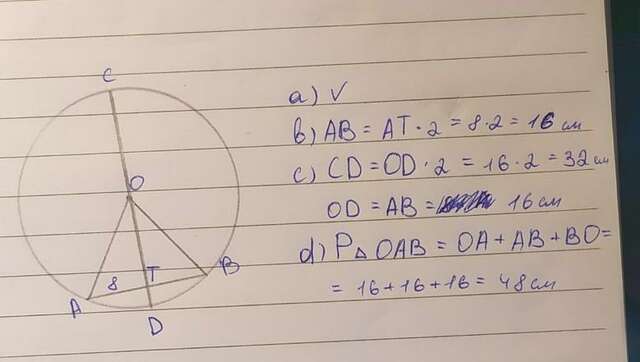 C
O
8
T
B
A
D
a) V
b) AB = AT · 2 = 8 · 2 = 16 см
c) CD = OD · 2 = 16 · 2 = 32 см
OD = AB = 16 см
d) P△OAB = OA + AB + BO =
= 16 + 16 + 16 = 48 см